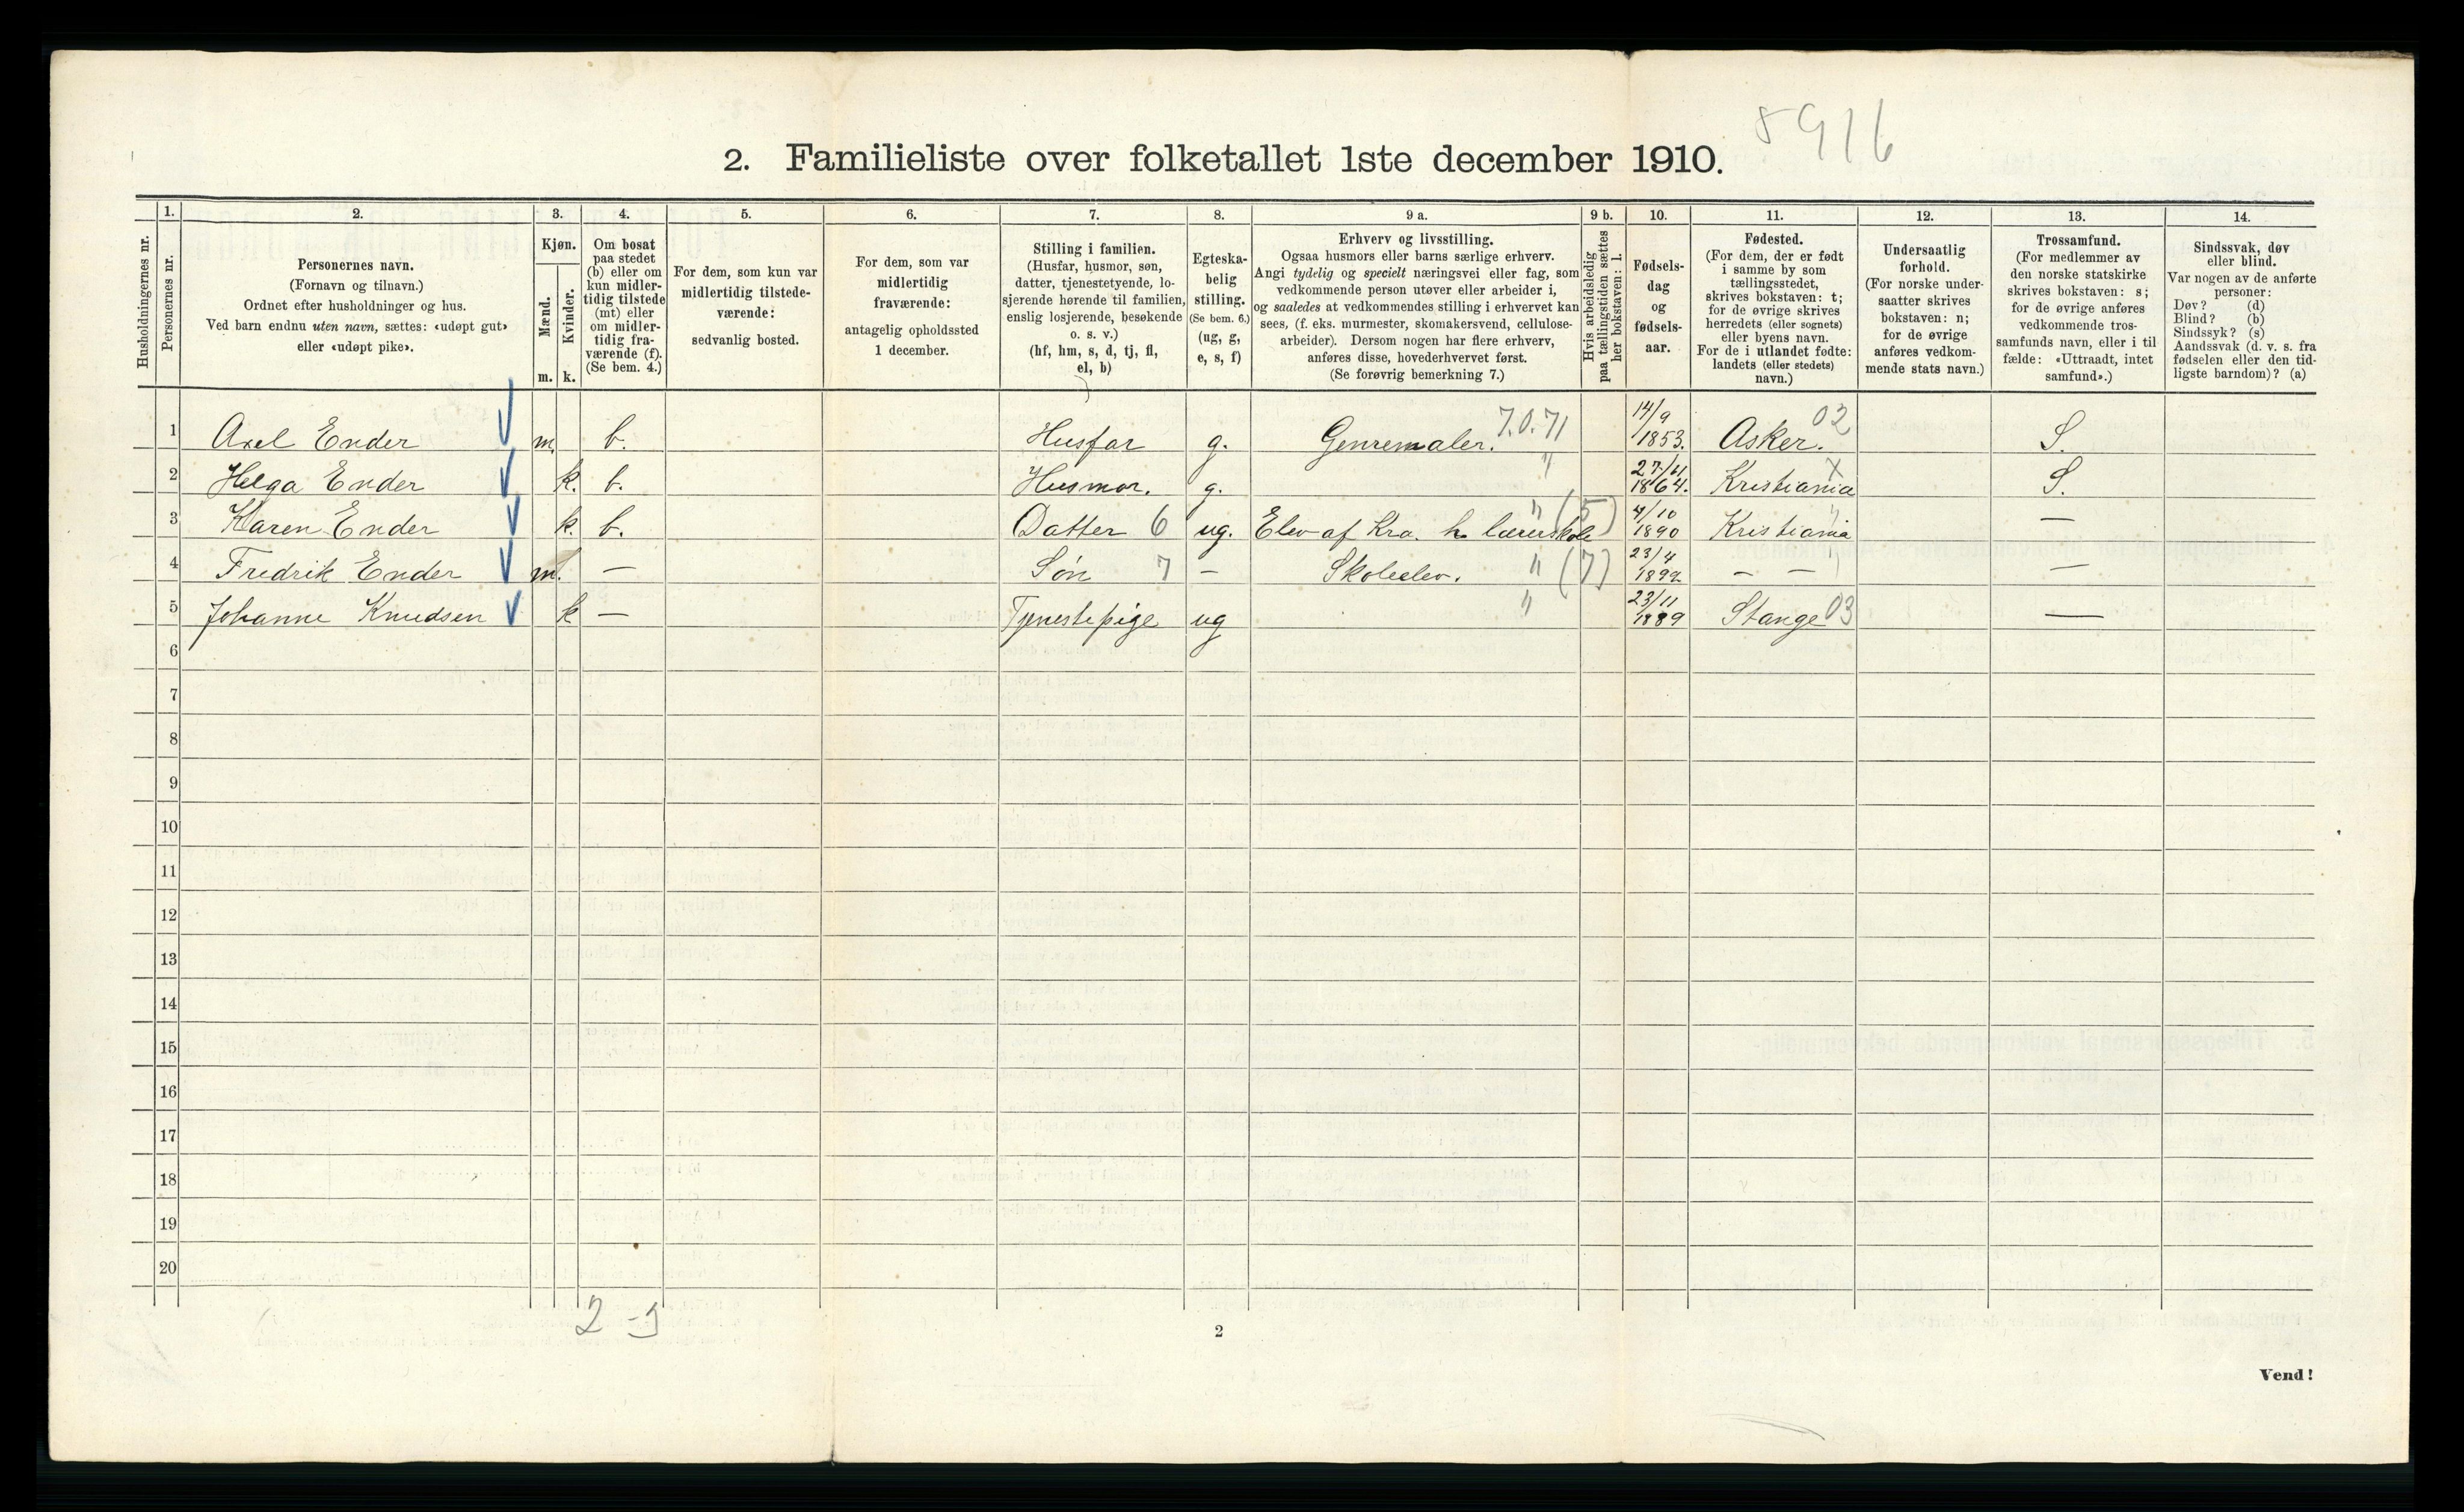 5916
2. Familieliste over folketallet 1ste december 1910.
Husholdningernes nr.
1.
Personernes nr.
2.
Personernes navn.
(Fornavn og tilnavn.)
Ordnet efter husholdninger og hus.
Ved barn endnu uten navn, sættes: «udøpt gut»
eller «udøpt pike».
3.
Kjøn.
Mænd.
m.
Kvinder.
k.
4.
Om bosat
paa stedet
(b) eller om
kun midler-
tidig tilstede
(mt) eller
om midler-
tidig fra-
værende (f).
(Se bem. 4.)
5.
For dem, som kun var
midlertidig tilstede-
værende:
sedvanlig bosted.
6.
For dem, som var
midlertidig
fraværende:
antagelig opholdssted
1 december.
7.
Stilling i familien.
(Husfar, husmor, søn,
datter, tjenestetyende, lo-
sjerende hørende til familien,
enslig losjerende, besøkende
o. s. v.)
(hf, hm, s, d, tj, fl,
el, b)
8.
Egteska-
belig
stilling.
(Se bem. 6.)
(ug, g,
e, s, f)
9 a.
Erhverv og livsstilling.
Ogsaa husmors eller barns særlige erhverv.
Angi tydelig og specielt næringsvei eller fag, som
vedkommende person utøver eller arbeider i,
og saaledes at vedkommendes stilling i erhvervet kan
sees, (f. eks. murmester, skomakersvend, cellulose-
arbeider). Dersom nogen har flere erhverv,
anføres disse, hovederhvervet først.
(Se forøvrig bemerkning 7.)
9 b.
Hvis arbeidsledig
paa tællingstiden sættes
her bokstaven: l.
10.
Fødsels-
dag
og
fødsels-
aar.
11.
Fødested.
(For dem, der er født
i samme by som
tællingsstedet,
skrives bokstaven: t;
for de øvrige skrives
herredets (eller sognets)
eller byens navn.
For de i utlandet fødte:
landets (eller stedets)
navn.)
12.
Undersaatlig
forhold.
(For norske under-
saatter skrives
bokstaven: n;
for de øvrige
anføres vedkom-
mende stats navn.)
13.
Trossamfund.
(For medlemmer av
den norske statskirke
skrives bokstaven: s;
for de øvrige anføres
vedkommende tros-
samfunds navn, eller i til
fælde: «Uttraadt, intet
samfund».)
14.
Sindssvak, døv
eller blind.
Var nogen av de anførte
personer:
Døv? (d)
Blind? (b)
Sindssyk? (s)
Aandssvak (d. v. s. fra
fødselen eller den tid-
ligste barndom)? (a)
1 Axel Ender m. b. Husfar g. Genremaler. 7.0.71 14/9 1853. Asker. 02 S.
2 Helga Ender k. b. Husmor. g. " 27/11 1864. Kristiania X S.
3 Karen Ender k. b. Datter 6 ug. Elev af Kra. h. lærerskole " (5) 4/10 1890 Kristiania " —
4 Fredrik Ender m. — Søn 7 - Skoleelev. " (7) 23/4 1892 — — " —
5 Johanne Knudsen k — Tjenestepige ug " 23/11 1889 Stange 03 —
6
7
8
9
10
11
12
13
14
15
16
17
18
19
20
2 - 3
2
Vend!